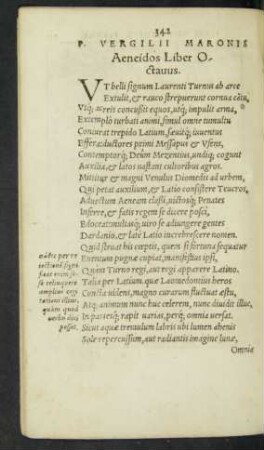 342
P. VERGILII MARONIS
Aeneidos Liber O-
ctauus.
VT belli signum Laurenti Turnus ab arce
Extulit, & rauco strepuerunt cornua cãtu,
Vtq; acreis concussit equos, utq; impulit arma,
Extemplò turbati animi, simul omne tumultu
Coniurat trepido Latium, sæuitq; iuuentus
Effera. ductores primi Messapus & Vfens,
Contemptorq; Deûm Mezentius, undiq; cogunt
Auxilia, & latos uastant cultoribus agros.
Mittitur & magni Venulus Diomedis ad urbem,
Qui petat auxilium, & Latio consistere Teucros,
Aduectum Aenean classi, uictosq; Penates
Inferre, & fatis regem se dicere posci,
Edoceat: multasq; uiro se adiungere gentes
Dardanio, & latè Latio increbrescere nomen.
Quid struat his cœptis, quem si fortuna sequatur
Euentum pugnæ cupiat, manifestius ipsi,
Quàm Turno regi, aut regi apparere Latino.
Talia per Latium. quæ Laomedontius heros
Cuncta uidens, magno curarum fluctuat æstu,
Atq; animum nunc huc celerem, nunc diuidit illuc,
In parteisq; rapit uarias, perq; omnia uersat.
Sicut aquæ tremulum labris ubi lumen ahenis
Sole repercussum, aut radiantis imagine lunæ,
Omnia